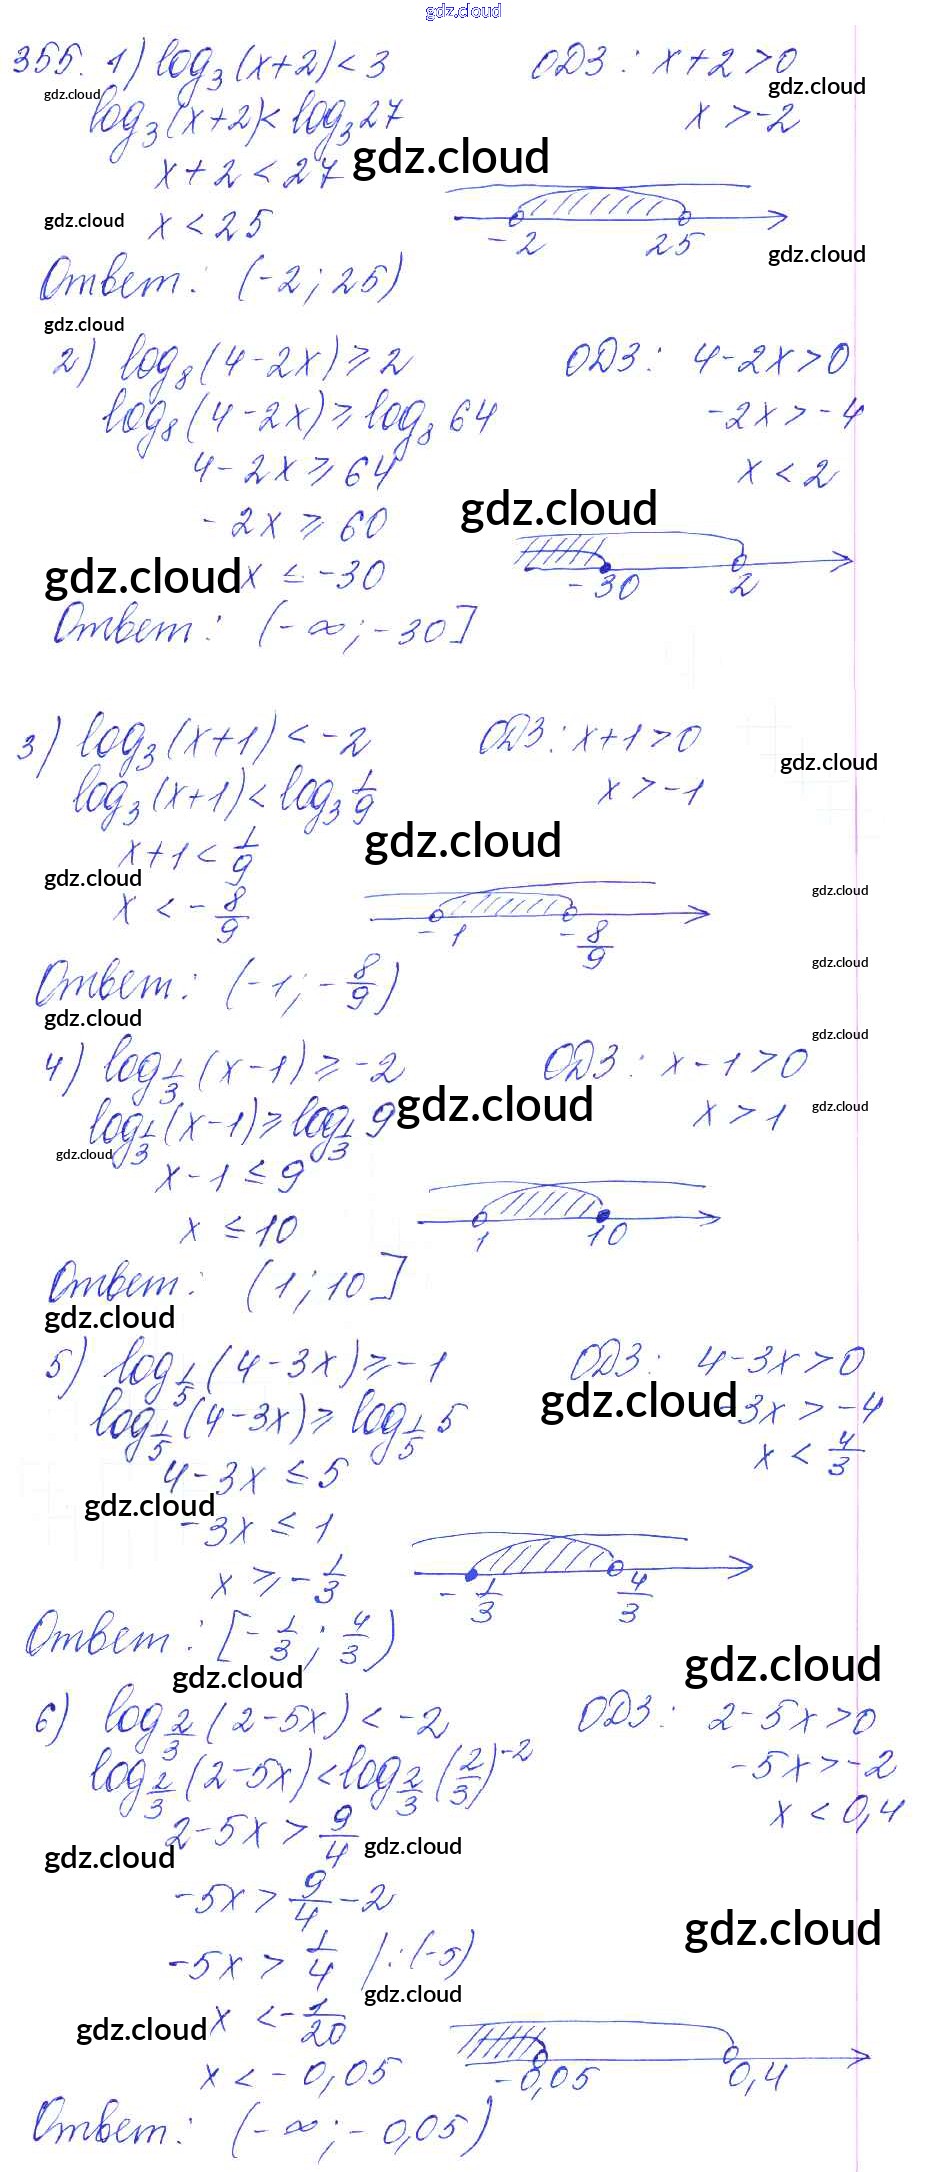 gdz.cloud
355. 1) log₃(x+2) < 3 ОДЗ: x+2>0
gdz.cloud gdz.cloud
log₃(x+2) < log₃27 x > -2
x+2 < 27 gdz.cloud
gdz.cloud x < 25 gdz.cloud
-2 25
Ответ: (-2; 25)
gdz.cloud
2) log₈(4-2x) ≥ 2 ОДЗ: 4-2x>0
log₈(4-2x) ≥ log₈64 -2x > -4
4-2x ≥ 64 x < 2
-2x ≥ 60 gdz.cloud
gdz.cloud x ≤ -30 -30 2
Ответ: (-∞; -30]
3) log₃(x+1) < -2 ОДЗ: x+1>0
gdz.cloud
log₃(x+1) < log₃ 1/9 x > -1
x+1 < 1/9 gdz.cloud
gdz.cloud gdz.cloud
x < -8/9 -1 -8/9
Ответ: (-1; -8/9) gdz.cloud
gdz.cloud gdz.cloud
4) log_{1/3}(x-1) ≥ -2 ОДЗ: x-1>0
log_{1/3}(x-1) ≥ log_{1/3} 9 gdz.cloud x > 1 gdz.cloud
gdz.cloud
x-1 ≤ 9
x ≤ 10 1 10
Ответ: (1; 10]
gdz.cloud
5) log_{1/5}(4-3x) ≥ -1 ОДЗ: 4-3x>0
log_{1/5}(4-3x) ≥ log_{1/5} 5 gdz.cloud -3x > -4
4-3x ≤ 5 x < 4/3
gdz.cloud
-3x ≤ 1
x ≥ -1/3 -1/3 4/3
Ответ: [-1/3; 4/3)
gdz.cloud gdz.cloud
6) log_{2/3}(2-5x) < -2 ОДЗ: 2-5x>0
log_{2/3}(2-5x) < log_{2/3}(2/3)⁻² -5x > -2
2-5x > 9/4 x < 0,4
gdz.cloud gdz.cloud
-5x > 9/4 - 2 gdz.cloud
-5x > 1/4 |:(-5)
gdz.cloud
gdz.cloud x < -1/20
x < -0,05 -0,05 0,4
Ответ: (-∞; -0,05)